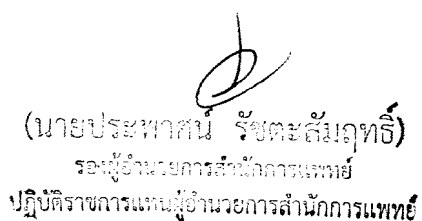 (นายประพาศน์ รัชตะสัมฤทธิ์)
รองผู้อำนวยการสำนักการแพทย์
ปฏิบัติราชการแทนผู้อำนวยการสำนักการแพทย์